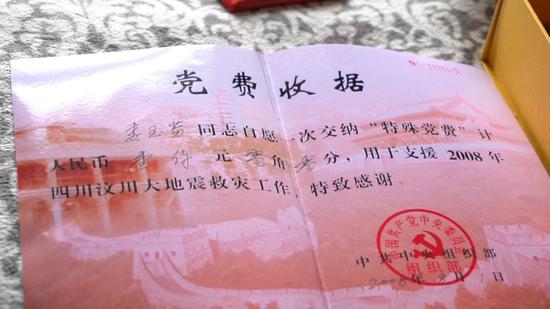 党费收据
同志自愿一次交纳“特殊党费”计
人民币 元零角零分,用于支援2008年
四川汶川大地震救灾工作,特致感谢。
中国共产党中央委员会
组织部
中共中央组织部
2008年 月 日